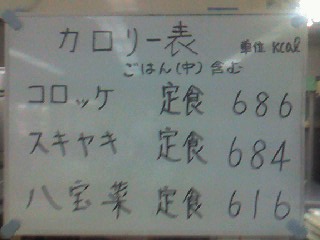 カロリー表 単位 kcal
ごはん(中)含む
コロッケ 定食 686
スキヤキ 定食 684
八宝菜 定食 616